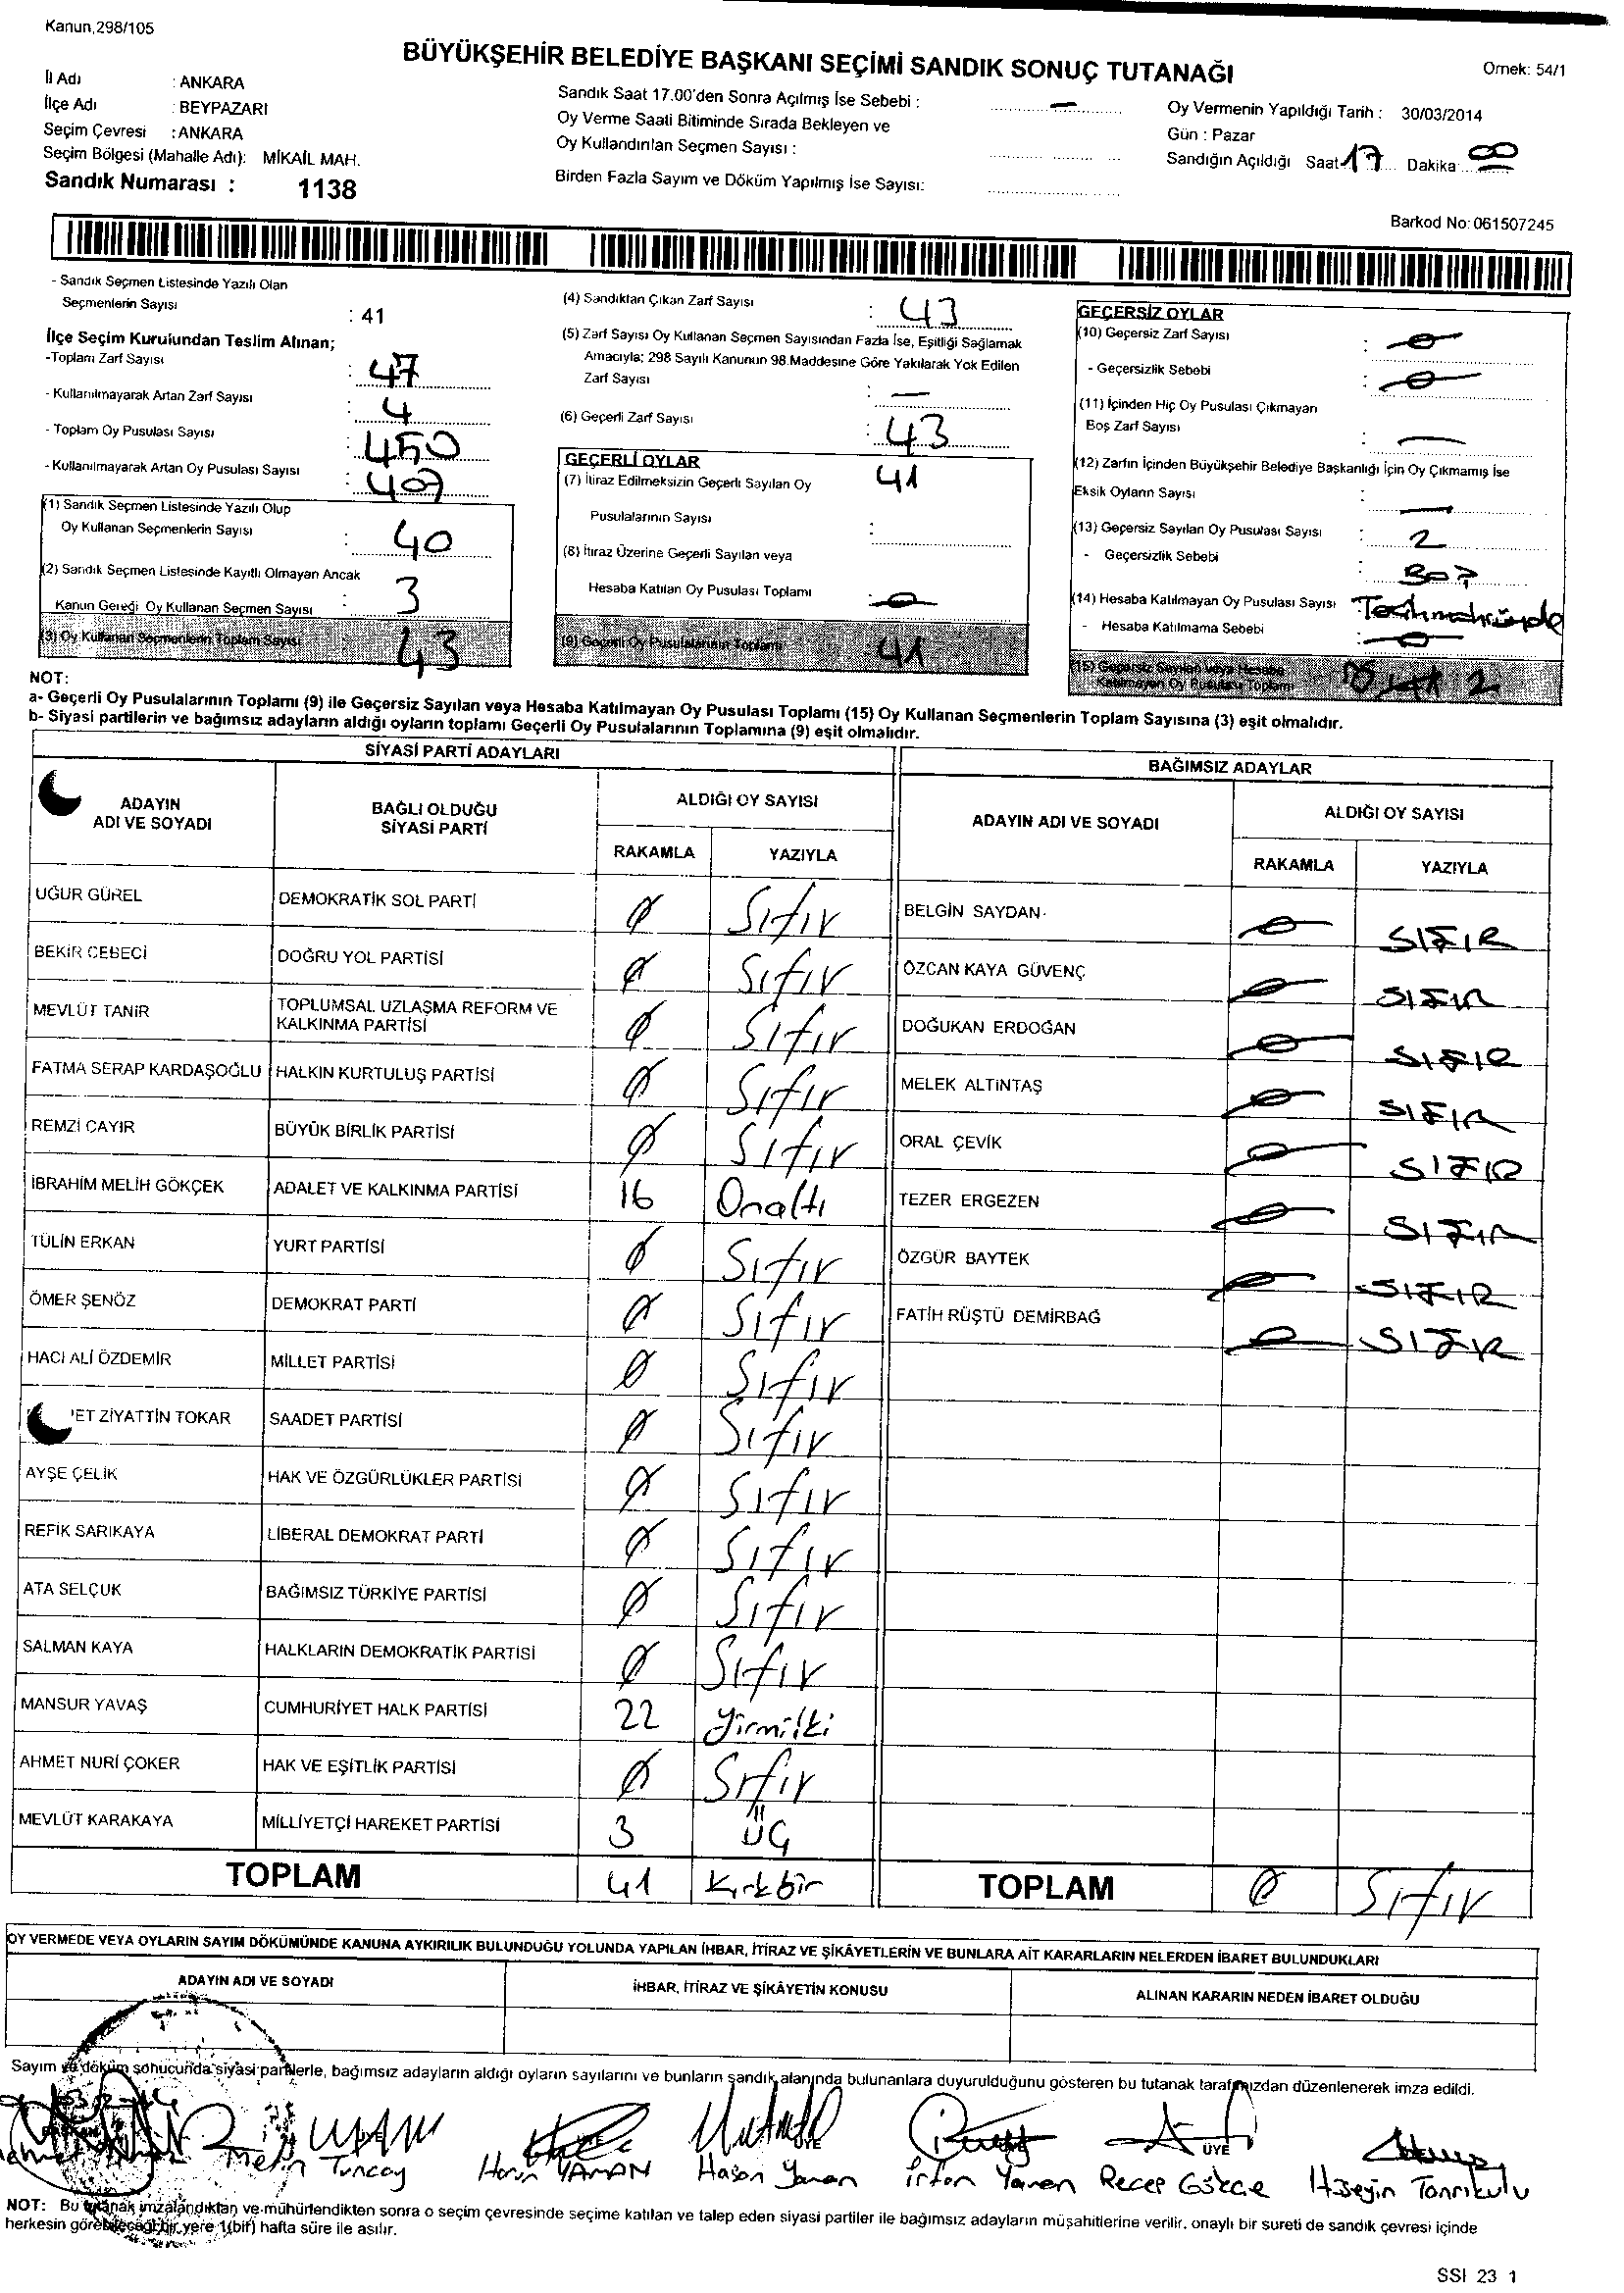 Kanun,298/105
BÜYÜKŞEHİR BELEDİYE BAŞKANI SEÇİMİ SANDIK SONUÇ TUTANAĞI
Örnek: 54/1
İl Adı : ANKARA
İlçe Adı : BEYPAZARI
Seçim Çevresi : ANKARA
Seçim Bölgesi (Mahalle Adı): MİKAİL MAH.
Sandık Numarası : 1138
Sandık Saat 17.00'den Sonra Açılmış İse Sebebi : —
Oy Verme Saati Bitiminde Sırada Bekleyen ve
Oy Kullandırılan Seçmen Sayısı :
Birden Fazla Sayım ve Döküm Yapılmış İse Sayısı:
Oy Vermenin Yapıldığı Tarih : 30/03/2014
Gün : Pazar
Sandığın Açıldığı Saat 17 Dakika: 00
Barkod No: 061507245
- Sandık Seçmen Listesinde Yazılı Olan
Seçmenlerin Sayısı : 41
İlçe Seçim Kurulundan Teslim Alınan;
-Toplam Zarf Sayısı : 47
- Kullanılmayarak Artan Zarf Sayısı : 4
- Toplam Oy Pusulası Sayısı : 450
- Kullanılmayarak Artan Oy Pusulası Sayısı : 407
(1) Sandık Seçmen Listesinde Yazılı Olup
Oy Kullanan Seçmenlerin Sayısı : 40
(2) Sandık Seçmen Listesinde Kayıtlı Olmayan Ancak
Kanun Gereği Oy Kullanan Seçmen Sayısı : 3
(3) Oy Kullanan Seçmenlerin Toplam Sayısı : 43
(4) Sandıktan Çıkan Zarf Sayısı : 43
(5) Zarf Sayısı Oy Kullanan Seçmen Sayısından Fazla İse, Eşitliği Sağlamak
Amacıyla; 298 Sayılı Kanunun 98.Maddesine Göre Yakılarak Yok Edilen
Zarf Sayısı : —
(6) Geçerli Zarf Sayısı : 43
GEÇERLİ OYLAR
(7) İtiraz Edilmeksizin Geçerli Sayılan Oy 41
Pusulalarının Sayısı :
(8) İtiraz Üzerine Geçerli Sayılan veya
Hesaba Katılan Oy Pusulası Toplamı : 0
(9) Geçerli Oy Pusulalarının Toplamı 41
GEÇERSİZ OYLAR
(10) Geçersiz Zarf Sayısı : 0
- Geçersizlik Sebebi : 0
(11) İçinden Hiç Oy Pusulası Çıkmayan
Boş Zarf Sayısı : —
(12) Zarfın İçinden Büyükşehir Belediye Başkanlığı İçin Oy Çıkmamış İse
Eksik Oyların Sayısı : —
(13) Geçersiz Sayılan Oy Pusulası Sayısı : 2
- Geçersizlik Sebebi :
(14) Hesaba Katılmayan Oy Pusulası Sayısı :
- Hesaba Katılmama Sebebi : 0
(15) Geçersiz Sayılan veya Hesaba
Katılmayan Oy Pusulası Toplamı 2
NOT:
a- Geçerli Oy Pusulalarının Toplamı (9) ile Geçersiz Sayılan veya Hesaba Katılmayan Oy Pusulası Toplamı (15) Oy Kullanan Seçmenlerin Toplam Sayısına (3) eşit olmalıdır.
b- Siyasi partilerin ve bağımsız adayların aldığı oyların toplamı Geçerli Oy Pusulalarının Toplamına (9) eşit olmalıdır.
SİYASİ PARTİ ADAYLARI
ADAYIN ADI VE SOYADI BAĞLI OLDUĞU SİYASİ PARTİ ALDIĞI OY SAYISI
RAKAMLA YAZIYLA
UĞUR GÜREL DEMOKRATİK SOL PARTİ 0 Sıfır
BEKİR CEBECİ DOĞRU YOL PARTİSİ 0 Sıfır
MEVLÜT TANIR TOPLUMSAL UZLAŞMA REFORM VE KALKINMA PARTİSİ 0 Sıfır
FATMA SERAP KARDAŞOĞLU HALKIN KURTULUŞ PARTİSİ 0 Sıfır
REMZİ ÇAYIR BÜYÜK BİRLİK PARTİSİ 0 Sıfır
İBRAHİM MELİH GÖKÇEK ADALET VE KALKINMA PARTİSİ 16 Onaltı
TÜLİN ERKAN YURT PARTİSİ 0 Sıfır
ÖMER ŞENÖZ DEMOKRAT PARTİ 0 Sıfır
HACI ALİ ÖZDEMİR MİLLET PARTİSİ 0 Sıfır
ET ZİYATTİN TOKAR SAADET PARTİSİ 0 Sıfır
AYŞE ÇELİK HAK VE ÖZGÜRLÜKLER PARTİSİ 0 Sıfır
REFİK SARIKAYA LİBERAL DEMOKRAT PARTİ 0 Sıfır
ATA SELÇUK BAĞIMSIZ TÜRKİYE PARTİSİ 0 Sıfır
SALMAN KAYA HALKLARIN DEMOKRATİK PARTİSİ 0 Sıfır
MANSUR YAVAŞ CUMHURİYET HALK PARTİSİ 22 Yirmiiki
AHMET NURİ ÇOKER HAK VE EŞİTLİK PARTİSİ 0 Sıfır
MEVLÜT KARAKAYA MİLLİYETÇİ HAREKET PARTİSİ 3 Üç
TOPLAM 41 Kırkbir
BAĞIMSIZ ADAYLAR
ADAYIN ADI VE SOYADI ALDIĞI OY SAYISI
RAKAMLA YAZIYLA
BELGİN SAYDAN 0 SIFIR
ÖZCAN KAYA GÜVENÇ 0 SIFIR
DOĞUKAN ERDOĞAN 0 SIFIR
MELEK ALTINTAŞ 0 SIFIR
ORAL ÇEVİK 0 SIFIR
TEZER ERGEZEN 0 SIFIR
ÖZGÜR BAYTEK 0 SIFIR
FATİH RÜŞTÜ DEMİRBAĞ 0 SIFIR
TOPLAM 0 Sıfır
OY VERMEDE VEYA OYLARIN SAYIM DÖKÜMÜNDE KANUNA AYKIRILIK BULUNDUĞU YOLUNDA YAPILAN İHBAR, İTİRAZ VE ŞİKÂYETLERİN VE BUNLARA AİT KARARLARIN NELERDEN İBARET BULUNDUKLARI
ADAYIN ADI VE SOYADI İHBAR, İTİRAZ VE ŞİKÂYETİN KONUSU ALINAN KARARIN NEDEN İBARET OLDUĞU
Sayım ve döküm sonucunda siyasi partilerle, bağımsız adayların aldığı oyların sayılarını ve bunların sandık alanında bulunanlara duyurulduğunu gösteren bu tutanak tarafımızdan düzenlenerek imza edildi.
ÜYE
Metin Tuncay Harun YAMAN Hasan Yaman İrfan Yaman Recep Gökçe Hüseyin Tanrıkulu
NOT: Bu tutanak imzalandıktan ve mühürlendikten sonra o seçim çevresinde seçime katılan ve talep eden siyasi partiler ile bağımsız adayların müşahitlerine verilir, onaylı bir sureti de sandık çevresi içinde
herkesin görebileceği bir yere 1(bir) hafta süre ile asılır.
SSI 23 1